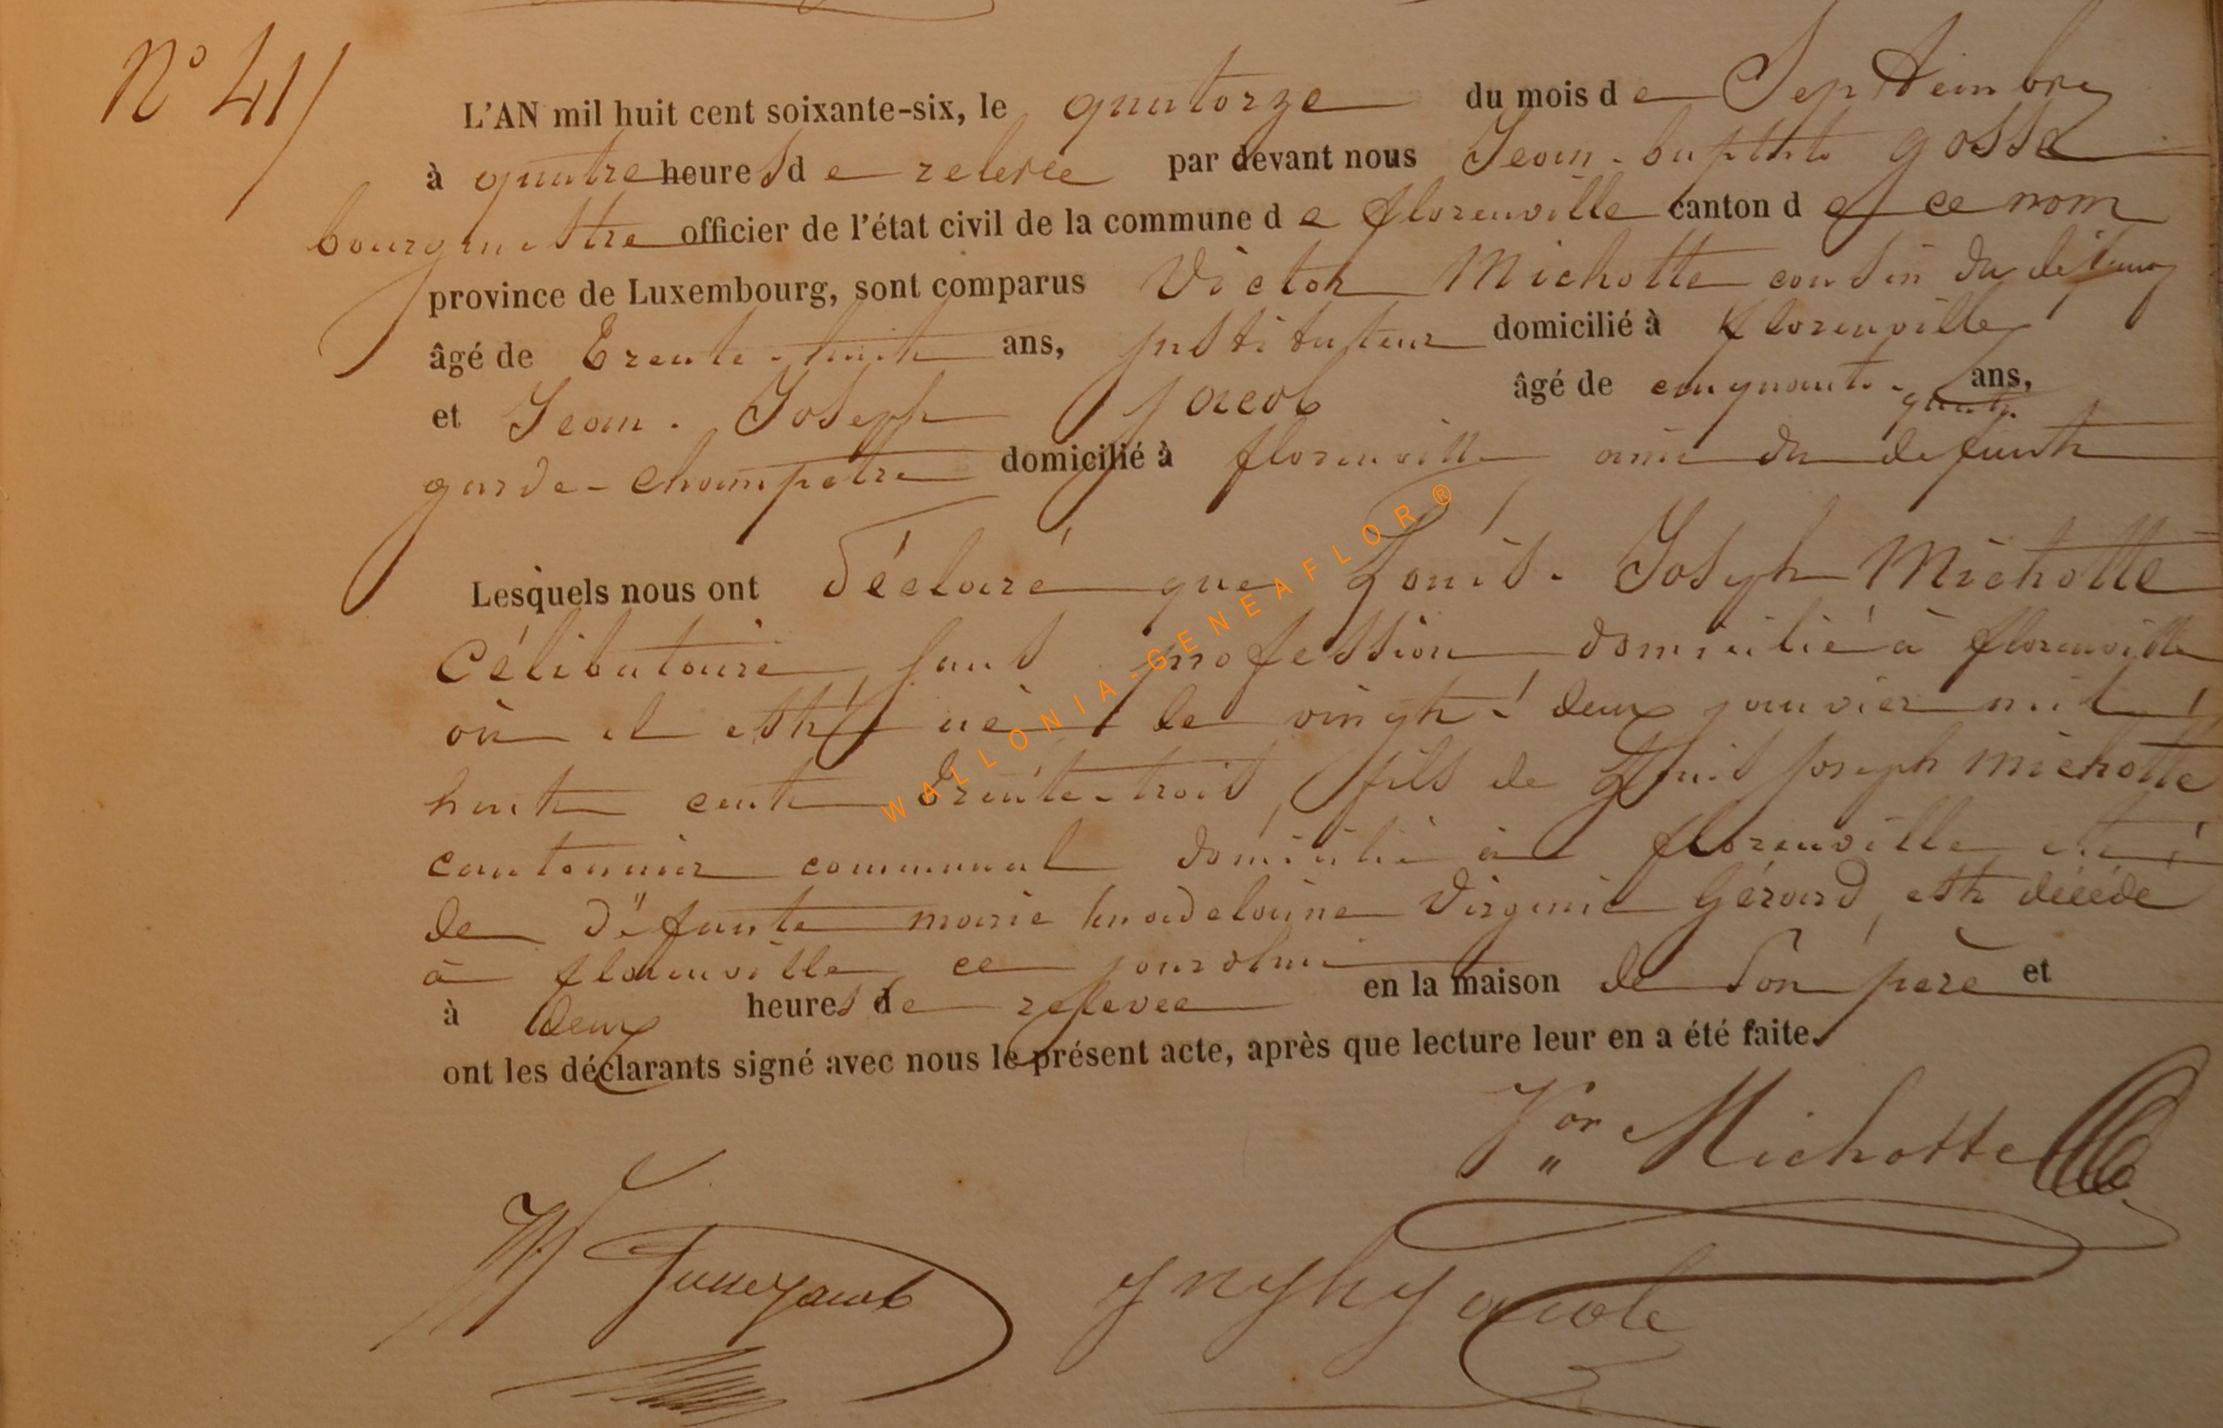 N° 41
L'AN mil huit cent soixante-six, le quatorze du mois de Septembre
à quatre heures de relevée par devant nous Jean-baptiste gosse
bourgmestre officier de l'état civil de la commune de florenville canton de ce nom
province de Luxembourg, sont comparus Victor Michotte cousin du défunt
âgé de trente-huit ans, instituteur domicilié à florenville
et Jean-Joseph jacob âgé de cinquante-quatre ans,
garde-champetre domicilié à florenville ami du defunt
Lesquels nous ont déclaré que Louis-Joseph Michotte
Célibataire, sans profession domicilié à florenville
où il est né le vingt-deux janvier mil
huit cent trente-trois, fils de Louis joseph michotte
cantonnier communal domicilié à florenville et
de défunte marie madelaine Virginie Gérard, est décédé
à florenville ce jourdhui
à deux heures de relevée en la maison de son père et
ont les déclarants signé avec nous le présent acte, après que lecture leur en a été faite.
Vor Michotte
WALLONIA-GENEAFLOR®